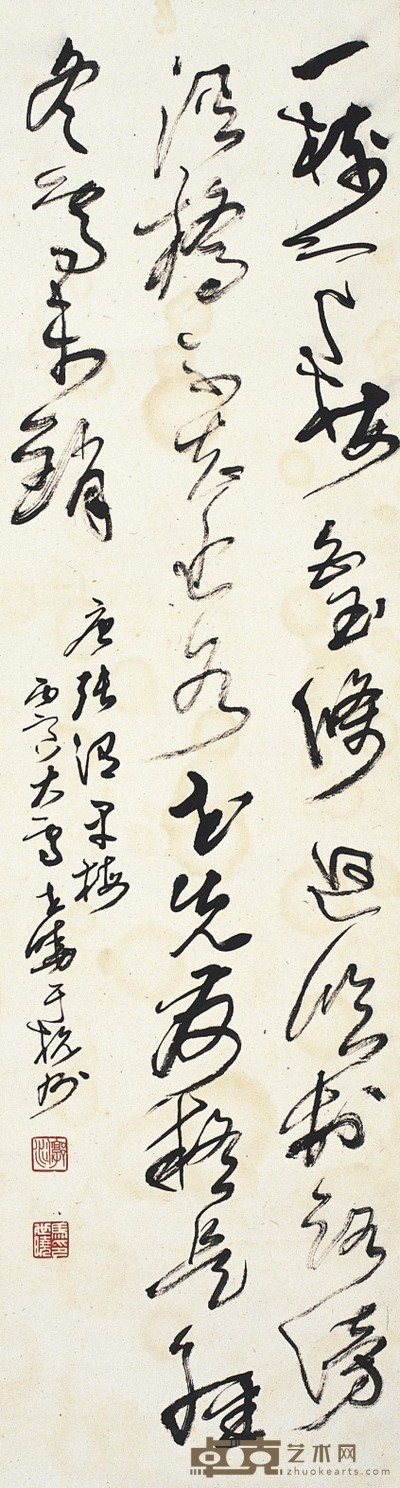 一樹寒梅白玉條迥臨村路傍
溪橋不知近水花先發疑是經
冬雪未銷
唐張謂早梅
丙寅大雪世曉于杭州
馬印世曉
卓克艺术网
zhuokearts.com